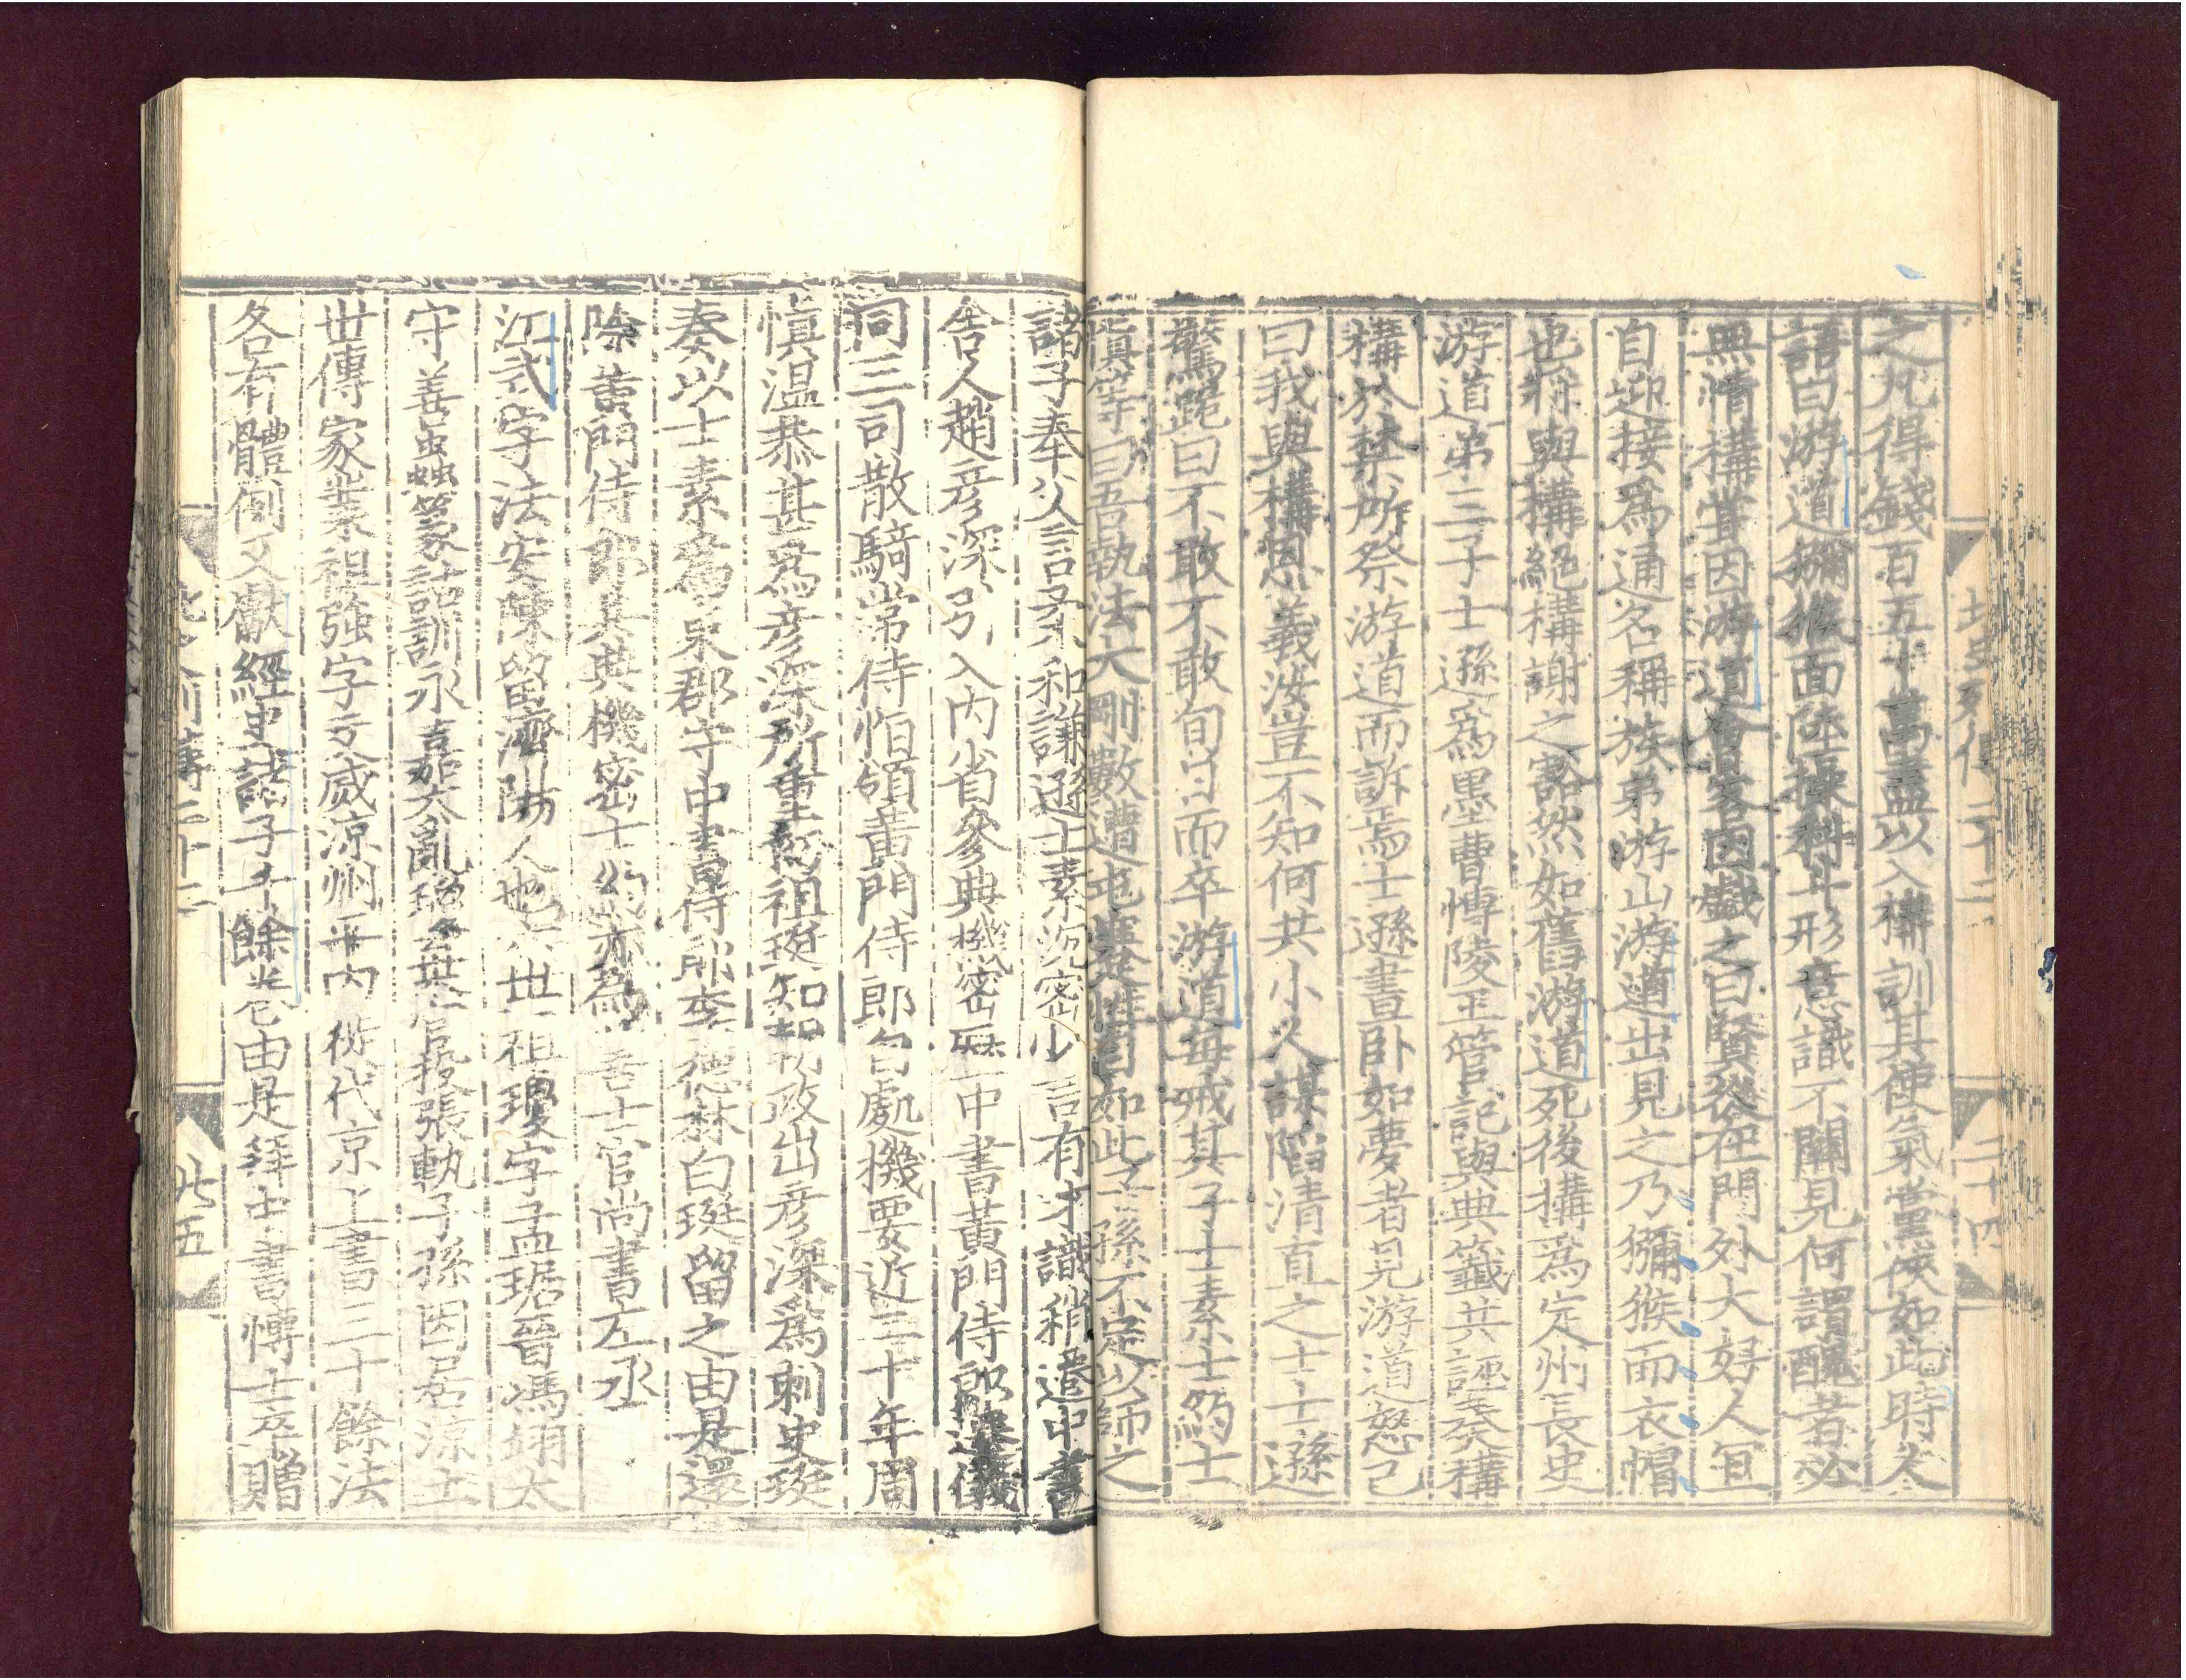 之凡得錢百五十萬盡以入構訓其使氣黨俠如此時人
語曰游道獼猴面陸操科斗形意識不關見何謂醜者必
無情構嘗因游道會客因戲之曰賢從在門外大好人宜
自迎接爲通名稱族弟游山游道出見之乃獼猴而衣帽
也將與構絕構謝之豁然如舊游道死後構爲定州長史
游道弟三子士遜爲墨曹博陵王管記與典籤共誣奏構
構於禁所祭游道而訴焉士遜晝卧如夢者見游道怒己
曰我與構恩義汝豈不知何共小人謀陷清直之士士遜
驚跪曰不敢不敢旬日而卒游道每戒其子士素士約士
慎等曰吾執法太剛數遭屯蹇性自如此子孫不足以師之
諸子奉父言柔和謙遜士素沉密少言有才識稍遷中書
舍人趙彥深引入內省參典機密歷中書黃門侍郎遷儀
同三司散騎常侍恒領黃門侍郎自處機要近二十年周
慎溫恭甚爲彥深所重初祖珽知朝政出彥深爲刺史珽
奏以士素爲東郡守中書侍郎李德林白珽留之由是還
除黃門侍郎共典機密士約亦爲善士官尚書左丞
江式字法安陳留濟陽人也六世祖瓊字孟琚晉馮翊太
守善蟲篆詁訓永嘉大亂瓊棄官投張軌子孫因居涼土
世傳家業祖強字文威涼州平內徙代京上書三十餘法
各有體例又獻經史諸子千餘卷由是擢中書博士卒贈
北史列傳二十二
廿五